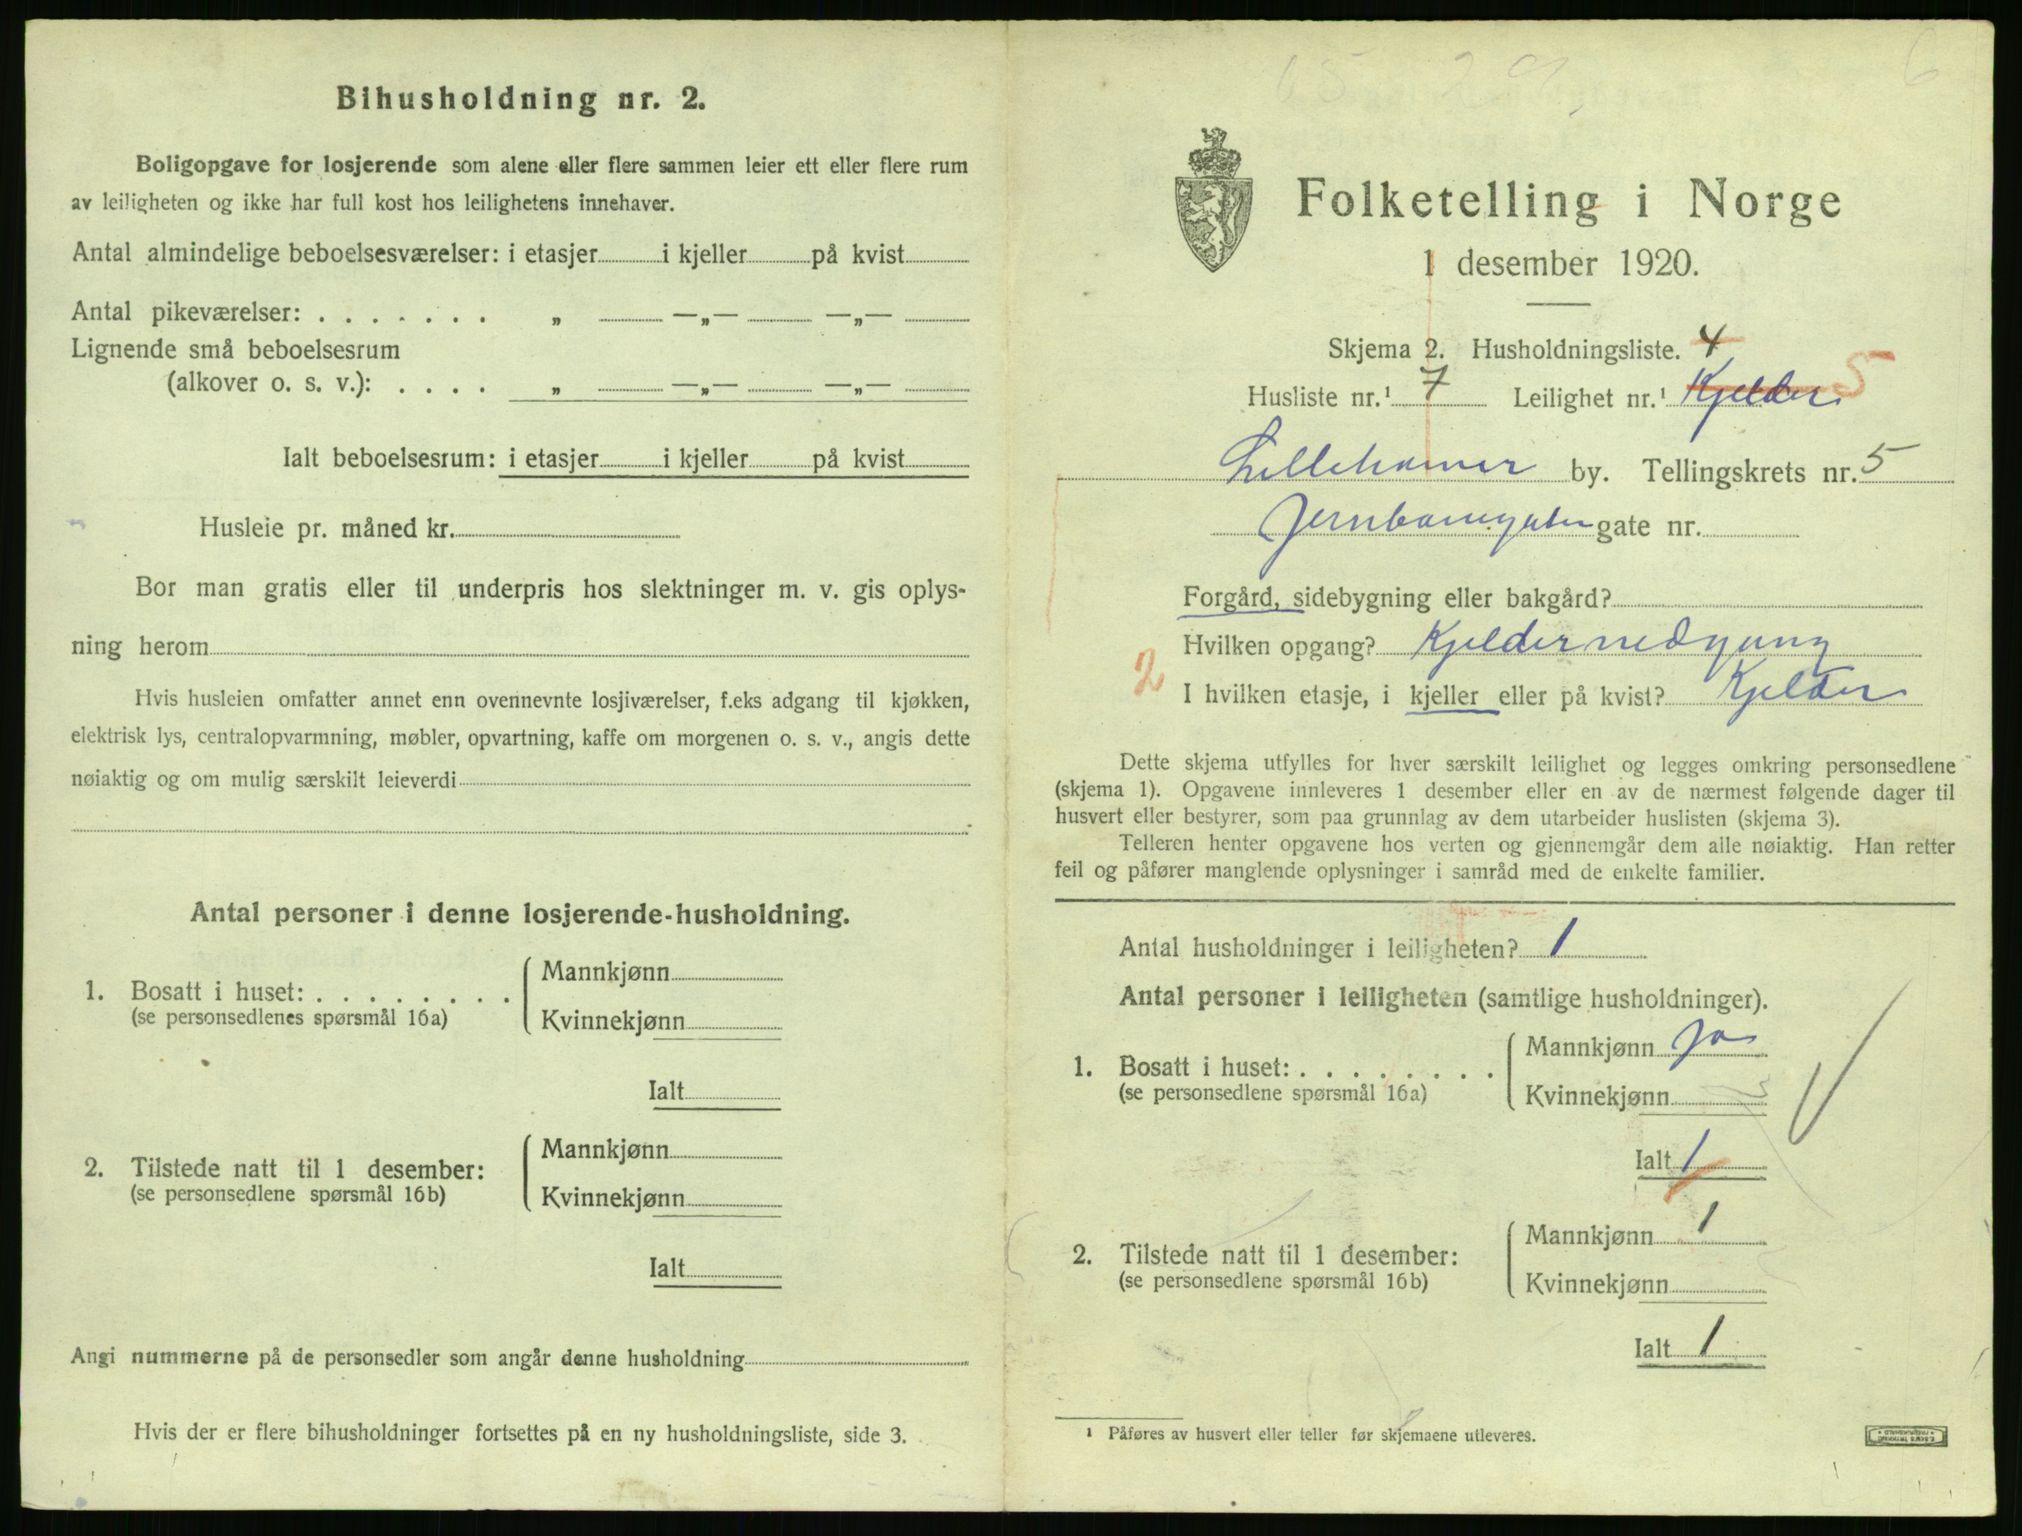 Bihusholdning nr. 2.
Boligopgave for losjerende som alene eller flere sammen leier ett eller flere rum
av leiligheten og ikke har full kost hos leilighetens innehaver.
Antal almindelige beboelsesværelser: i etasjer i kjeller på kvist
Antal pikeværelser: . . . . . . . „ —„— —„—
Lignende små beboelsesrum
(alkover o. s. v.): . . . . „ —„— —„—
Ialt beboelsesrum: i etasjer i kjeller på kvist
Husleie pr. måned kr.
Bor man gratis eller til underpris hos slektninger m. v. gis oplys-
ning herom
Hvis husleien omfatter annet enn ovennevnte losjiværelser, f.eks adgang til kjøkken,
elektrisk lys, centralopvarmning, møbler, opvartning, kaffe om morgenen o. s. v., angis dette
nøiaktig og om mulig særskilt leieverdi
Antal personer i denne losjerende-husholdning.
1. Bosatt i huset: . . . . . . . .
(se personsedlenes spørsmål 16a)
Mannkjønn
Kvinnekjønn
Ialt
2. Tilstede natt til 1 desember:
(se personsedlene spørsmål 16b)
Mannkjønn
Kvinnekjønn
Ialt
Angi nummerne på de personsedler som angår denne husholdning
Hvis der er flere bihusholdninger fortsettes på en ny husholdningsliste, side 3.
6
Folketelling i Norge
1 desember 1920.
Skjema 2. Husholdningsliste. 4
Husliste nr.¹ 7 Leilighet nr.¹ Kjelder 5
Lillehamer by. Tellingskrets nr. 5
Jernbanegaten gate nr.
Forgård, sidebygning eller bakgård?
Hvilken opgang? Kjeldernedgang
2
I hvilken etasje, i kjeller eller på kvist? Kjelder
Dette skjema utfylles for hver særskilt leilighet og legges omkring personsedlene
(skjema 1). Opgavene innleveres 1 desember eller en av de nærmest følgende dager til
husvert eller bestyrer, som paa grunnlag av dem utarbeider huslisten (skjema 3).
Telleren henter opgavene hos verten og gjennemgår dem alle nøiaktig. Han retter
feil og påfører manglende oplysninger i samråd med de enkelte familier.
Antal husholdninger i leiligheten? 1
Antal personer i leiligheten (samtlige husholdninger).
1. Bosatt i huset: . . . . . . . .
(se personsedlene spørsmål 16a)
Mannkjønn Ja
Kvinnekjønn
Ialt 1
2. Tilstede natt til 1 desember:
(se personsedlene spørsmål 16b)
Mannkjønn 1
Kvinnekjønn
Ialt 1
¹ Påføres av husvert eller teller før skjemaene utleveres.